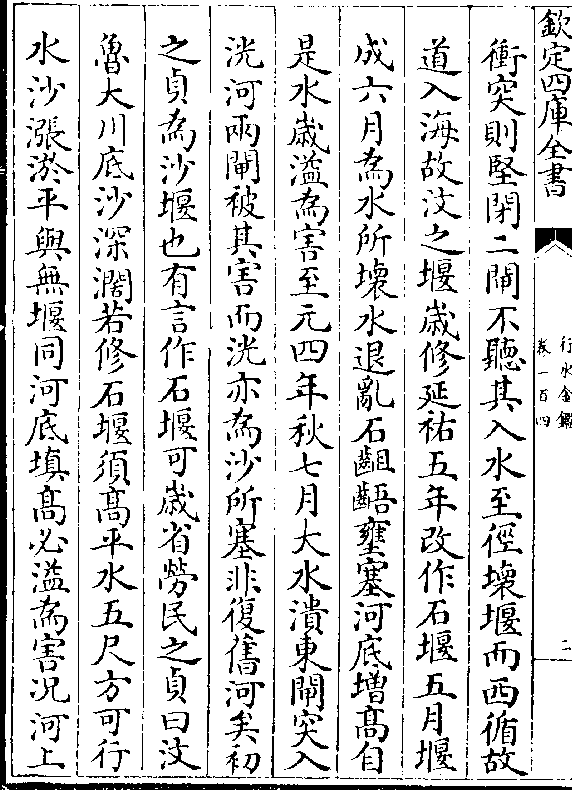 欽定四庫全書
行水金鑑
卷一百四
二
衝突則堅閉二閘不聽其入水至徑壊堰而西循故
道入海故汶之堰嵗修延祐五年改作石堰五月堰
成六月為水所壊水退亂石齟齬壅塞河底増髙自
是水嵗溢為害至元四年秋七月大水潰東閘突入
洸河兩閘被其害而洸亦為沙所塞非復舊河矣初
之貞為沙堰也有言作石堰可嵗省勞民之貞曰汶
魯大川底沙深濶若修石堰須髙平水五尺方可行
水沙漲淤平與無堰同河底填髙必溢為害况河上